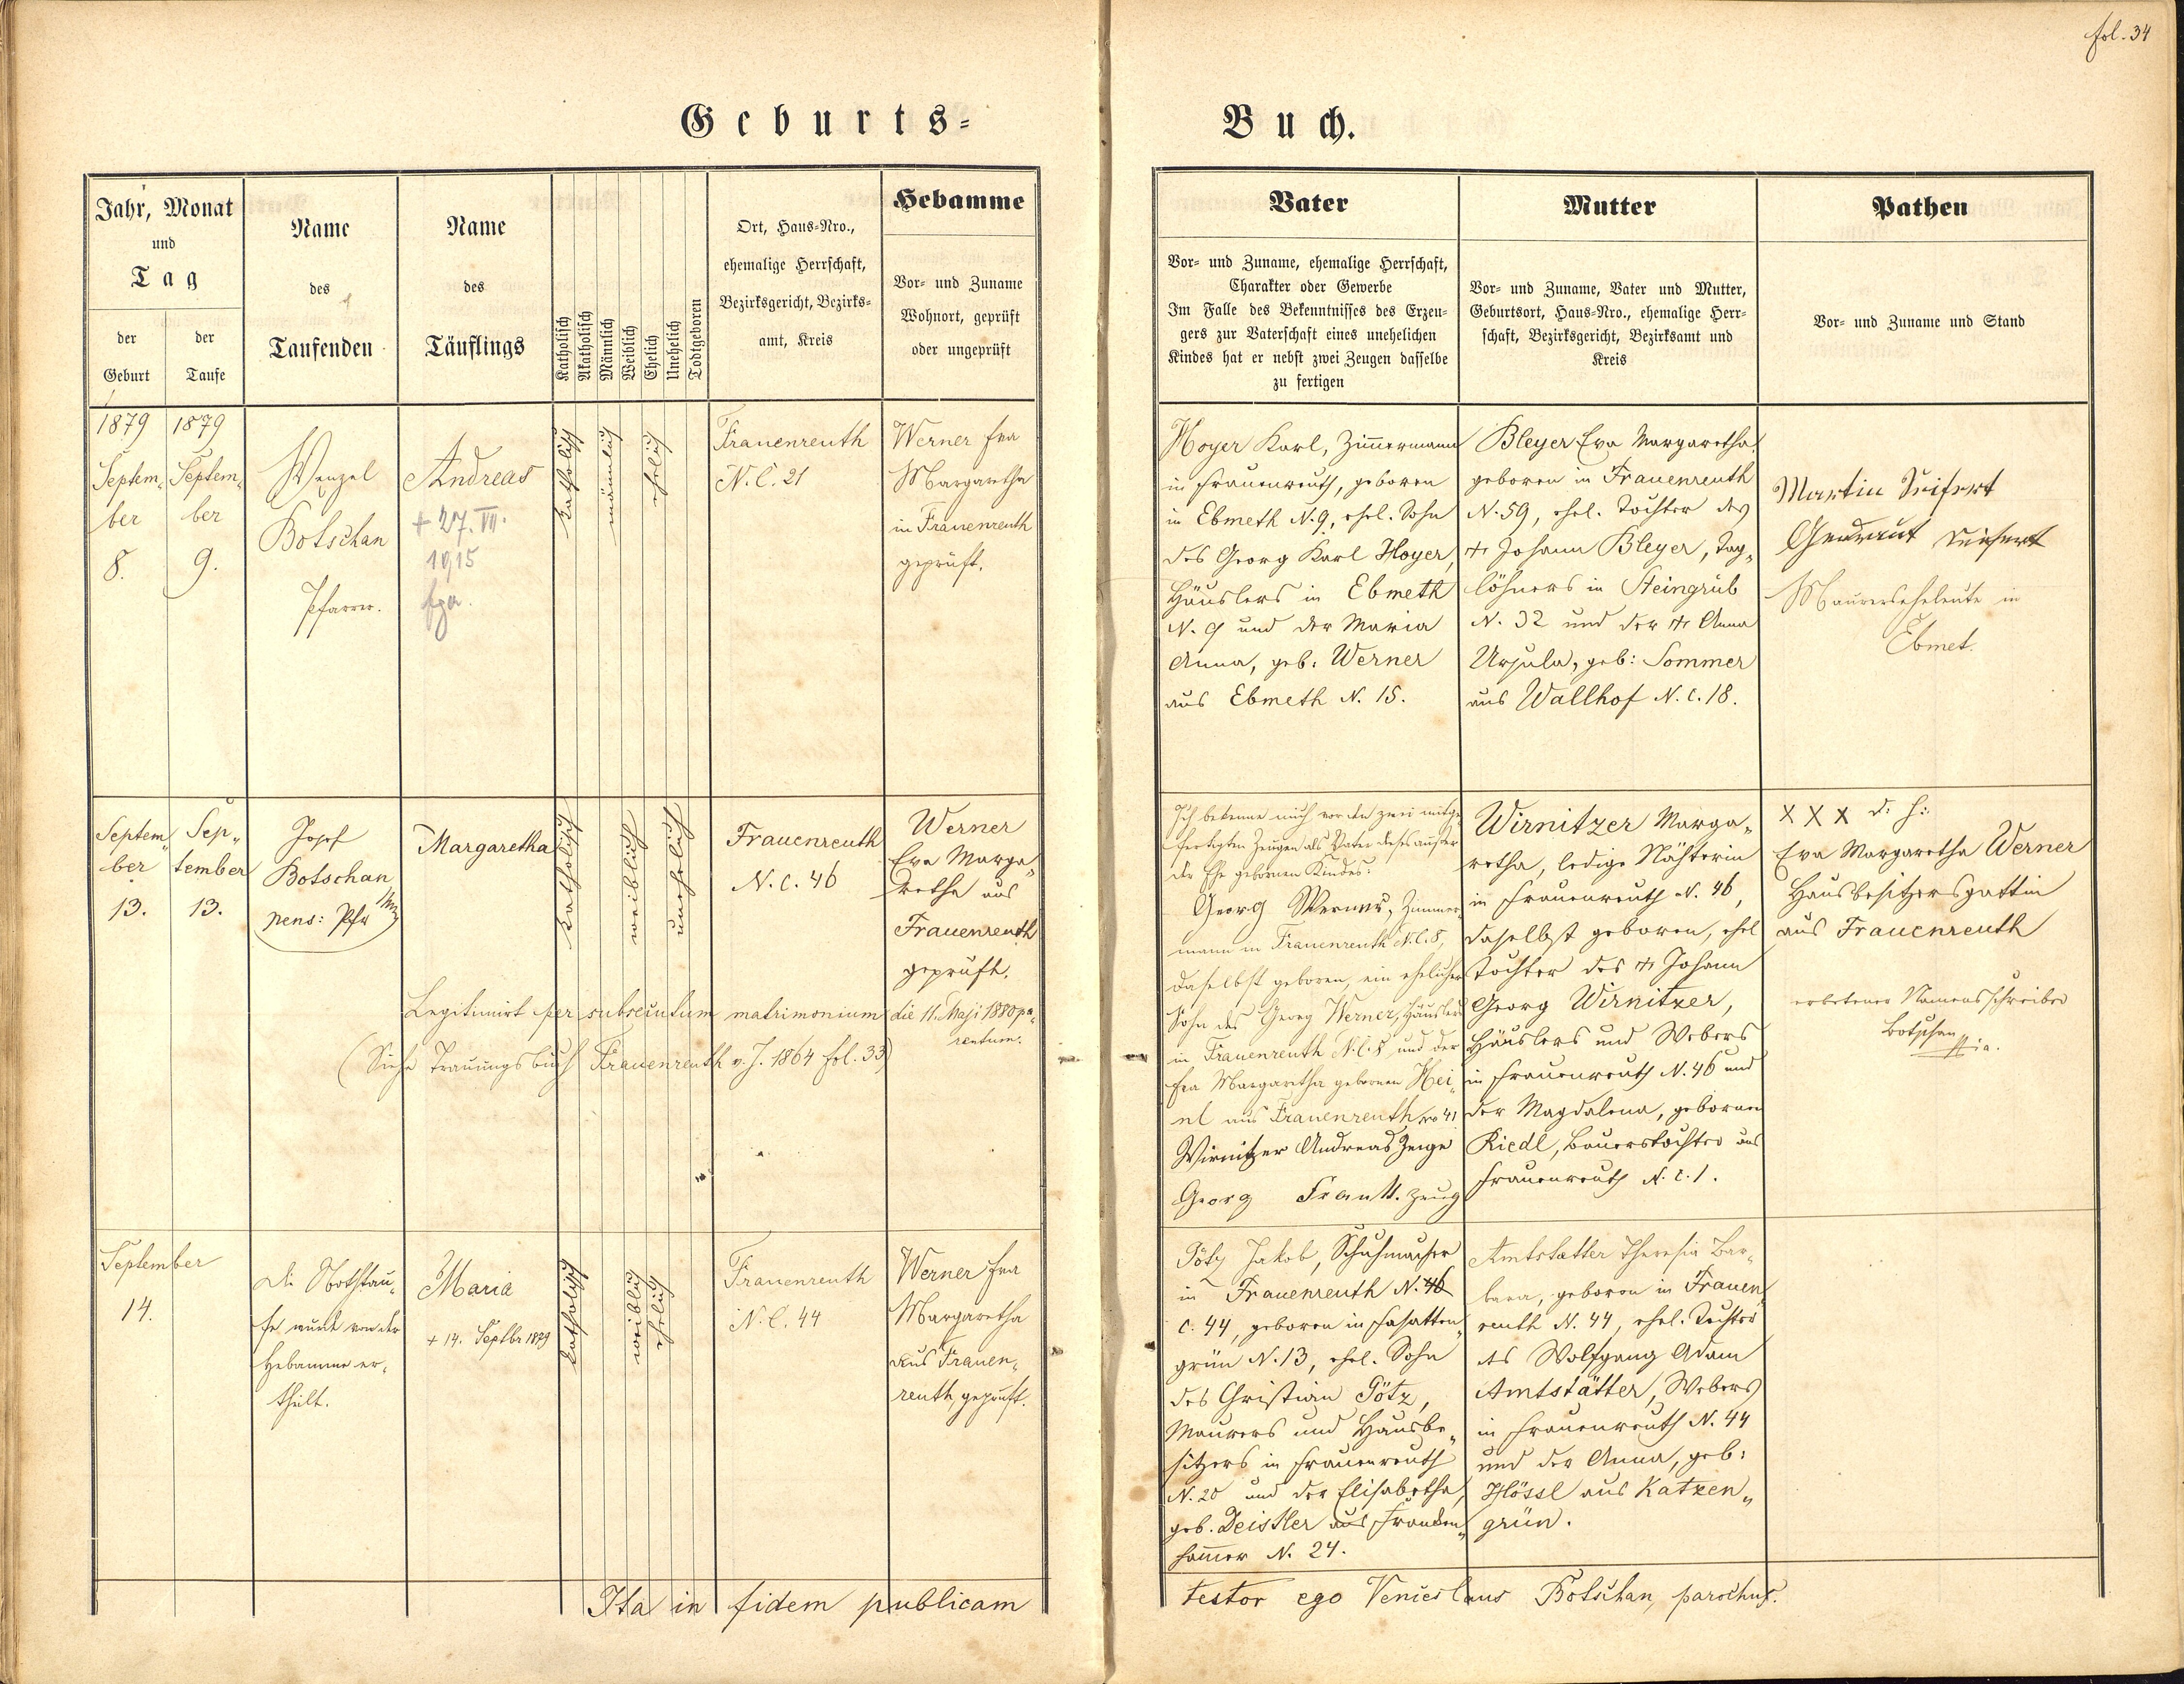 fol. 34
Geburts-
Buch.
Jahr, Monat
und
Tag
der
Geburt
der
Taufe
Name
des
Taufenden
Name
des
Täuflings
Katholisch
Akatholisch
Männlich
Weiblich
Ehelich
Unehelich
Todtgeboren
Ort, Haus-Nro.,
ehemalige Herrschaft,
Bezirksgericht, Bezirks-
amt, Kreis
Hebamme
Vor- und Zuname
Wohnort, geprüft
oder ungeprüft
Vater
Vor- und Zuname, ehemalige Herrschaft,
Charakter oder Gewerbe
Im Falle des Bekenntnisses des Erzeu-
gers zur Vaterschaft eines unehelichen
Kindes hat er nebst zwei Zeugen dasselbe
zu fertigen
Mutter
Vor- und Zuname, Vater und Mutter,
Geburtsort, Haus-Nro., ehemalige Herr-
schaft, Bezirksgericht, Bezirksamt und
Kreis
Pathen
Vor- und Zuname und Stand
1879
Septem„
ber
8.
1879
Septem„
ber
9.
Wenzel
Botschan
Pfarrer.
Andreas
+ 27. VII.
1915
katholisch
männlich
ehelich
Frauenreuth
N. C. 21
Werner Eva
Margaretha
in Frauenreuth
geprüft.
Hoyer Karl, Zimmermann
in Frauenreuth, geboren
in Ebmeth N. 9, ehel. Sohn
des Georg Karl Hoyer,
Häuslers in Ebmeth
N. 9 und der Maria
Anna, geb: Werner
aus Ebmeth N. 15.
Bleyer Eva Margaretha
geboren in Frauenreuth
N. 59, ehel. Tochter des
† Johann Bleyer, Tag„
löhners in Steingrüb
N. 32 und der † Anna
Ursula, geb: Sommer
aus Wallhof N. C. 18.
Martin Seifert
Seifert
Maurerseheleute in
Ebmet.
Septem„
ber
13.
Sep„
tember
13.
Josef
Botschan
pens: Pfr
Margaretha
katholisch
weiblich
unehelich
Frauenreuth
N. C. 46
Werner
Eva Marga„
retha aus
Frauenreuth
geprüft.
Legitimirt per subsecutum matrimonium die 11. Maji 1880 pa„
rentum.
(Siehe Trauungsbuch Frauenreuth v. J. 1864 fol. 33)
Ich bekenne mich vor den zwei mitge„
fertigten Zeugen als Vater dieses außer
der Ehe gebornen Kindes:
Georg Werner, Zimmer„
mann in Frauenreuth N. C. 8,
daselbst geboren, ein ehelicher
Sohn des Georg Werner, Häuslers
in Frauenreuth N. C. 8 und der
Eva Margaretha gebornen Hei„
nl aus Frauenreuth Nro 41
Wirnitzer Andreas Zeuge
Georg Frank. Zeug
Wirnitzer Marga„
retha, ledige Nähterin
in Frauenreuth N. 46,
daselbst geboren, ehel
Tochter des † Johann
Georg Wirnitzer,
Häuslers und Webers
in Frauenreuth N. 46 und
der Magdalena, gebornen
Riedl, Bauerstochter aus
Frauenreuth N. C. 1.
X X X d: h:
Eva Margaretha Werner
Hausbesitzersgattin
aus Frauenreuth
erbetener Namensschreiber
Botschan
September
14.
Die Nothtau„
fe wurde von der
Hebamme er„
theilt.
Maria
+ 14. Septbr 1879
katholisch
weiblich
ehelich
Frauenreuth
N. C. 44
Werner Eva
Margaretha
aus Frauen„
reuth, geprüft.
Götz Jakob, Schuhmacher
in Frauenreuth N. 46
C. 44, geboren in Schasatten„
grün N. 13, ehel. Sohn
des Christian Götz,
Maurers und Hausbe„
sitzers in Frauenreuth
N. 20 und der Elisabetha,
geb. Deistler aus Franken„
hammer N. 24.
Amtstatter Theresia Bar„
bara, geboren in Frauen„
reuth N. 44, ehel. Tochter
des Wolfgang Adam
Amtstätter, Webers
in Frauenreuth N. 44
und der Anna, geb:
Hössl aus Katzen„
grün.
Ita in fidem publicam
testor ego Venceslaus Botschan, parochus.